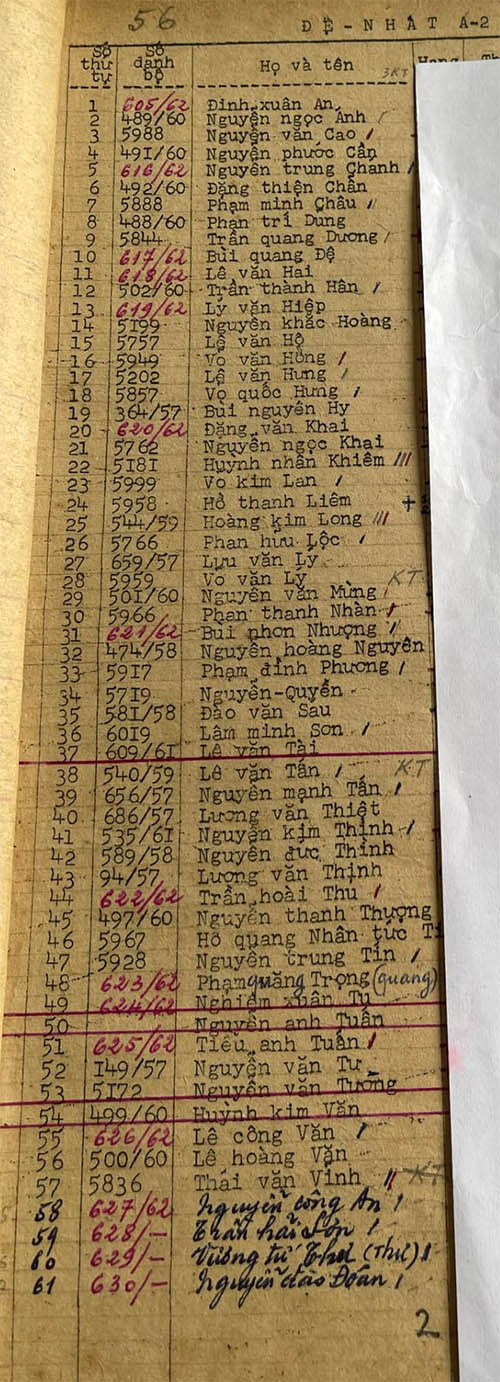 56
ĐỆ-NHẤT A-2
Số thứ tự Số danh bộ Họ và tên 3KT
1 605/62 Đinh xuân An
2 489/60 Nguyễn ngọc Ánh /
3 5988 Nguyễn văn Cao /
4 491/60 Nguyễn phước Cẩn
5 616/62 Nguyễn trung Chánh /
6 492/60 Đặng thiện Chẩn
7 5888 Phạm minh Châu //
8 488/60 Phan trí Dung
9 5844 Trần quang Dương /
10 617/62 Bùi quang Đệ
11 618/62 Lê văn Hai
12 502/60 Trần thành Hân /
13 619/62 Lý văn Hiệp
14 5199 Nguyễn khắc Hoàng
15 5757 Lê văn Hộ
16 5949 Vo văn Hồng /
17 5202 Lê văn Hưng /
18 5857 Vo quốc Hưng /
19 364/57 Bùi nguyên Hy
20 620/62 Đặng văn Khai
21 5762 Nguyễn ngọc Khai
22 5181 Huỳnh nhân Khiêm ///
23 5999 Vo kim Lan /
24 5958 Hồ thanh Liêm +
25 544/59 Hoàng kim Long ///
26 5766 Phan hữu Lộc /
27 659/57 Lưu văn Lý
28 5959 Vo văn Lý KT
29 501/60 Nguyễn văn Mừng /
30 5966 Phan thanh Nhàn /
31 621/62 Bùi nhơn Nhượng /
32 474/58 Nguyễn hoàng Nguyên
33 5917 Phạm đình Phương /
34 5719 Nguyễn-Quyền
35 581/58 Đào văn Sau
36 6019 Lâm minh Sơn /
37 609/61 Lê văn Tài
38 540/59 Lê văn Tấn / KT
39 656/57 Nguyễn mạnh Tấn /
40 686/57 Lương văn Thiệt
41 535/61 Nguyễn kim Thịnh /
42 589/58 Nguyễn đức Thịnh
43 94/57 Lương văn Thịnh
44 622/62 Trần hoài Thu /
45 497/60 Nguyễn thanh Thượng
46 5967 Hồ quang Nhân tức
47 5928 Nguyễn trung Tín /
48 623/62 Phạm quăng Trọng (quang)
49 624/62 Nghiêm xuân Tụ
50 Nguyễn anh Tuấn
51 625/62 Tiêu anh Tuấn /
52 149/57 Nguyễn văn Tư
53 5172 Nguyễn văn Tường
54 499/60 Huỳnh kim Văn
55 626/62 Lê công Văn /
56 500/60 Lê hoàng Văn
57 5836 Thái văn Vinh // KT
58 627/62 Nguyễn công An /
59 628/- Trần hải Sơn /
60 629/- Vương tứ Thư (THƯ) /
61 630/- Nguyễn đào Đoán /
2